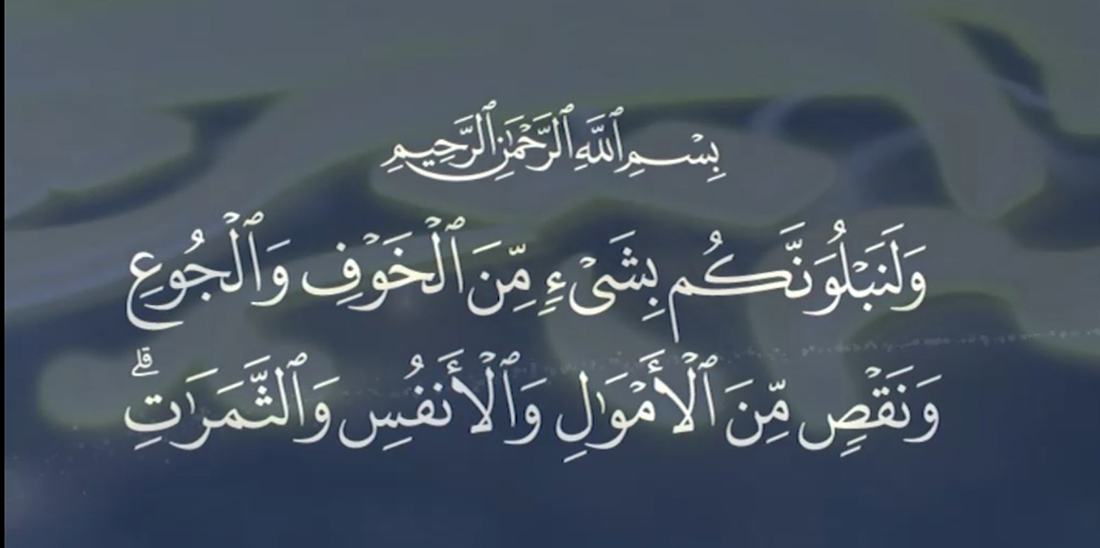 بِسْمِ ٱللَّهِ ٱلرَّحْمَٰنِ ٱلرَّحِيمِ
وَلَنَبْلُوَنَّكُم بِشَىْءٍ مِّنَ ٱلْخَوْفِ وَٱلْجُوعِ
وَنَقْصٍ مِّنَ ٱلْأَمْوَٰلِ وَٱلْأَنفُسِ وَٱلثَّمَرَٰتِ ۗ